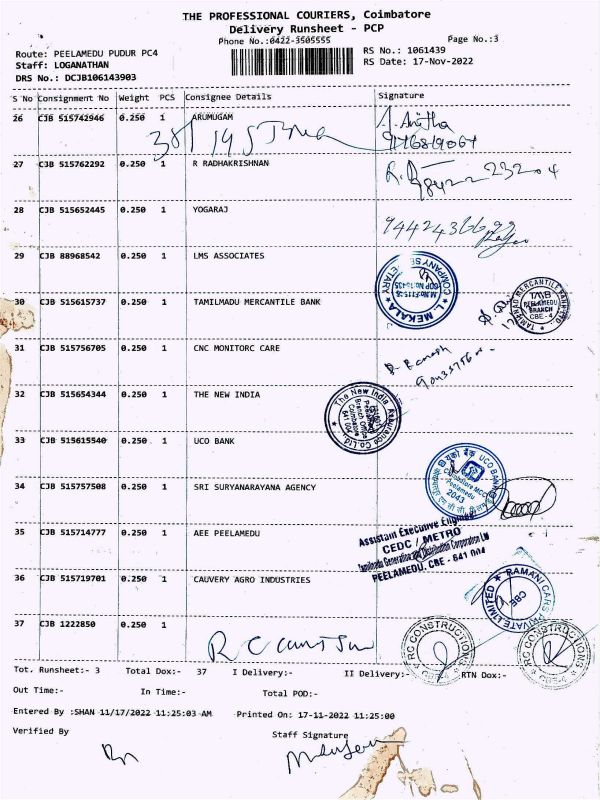 THE PROFESSIONAL COURIERS, Coimbatore
Delivery Runsheet - PCP
Phone No.:0422-3505555
Page No.:3
Route: PEELAMEDU PUDUR PC4
RS No.: 1061439
Staff: LOGANATHAN
RS Date: 17-Nov-2022
DRS No.: DCJB106143903
S No Consignment No Weight PCS Consignee Details Signature
26 CJB 515742946 0.250 1 ARUMUGAM
27 CJB 515762292 0.250 1 R RADHAKRISHNAN
28 CJB 515652445 0.250 1 YOGARAJ
29 CJB 88968542 0.250 1 LMS ASSOCIATES
L. MEKALA
COMPANY SECRETARY
30 CJB 515615737 0.250 1 TAMILMADU MERCANTILE BANK
TMB
PEELAMEDU
BRANCH
CBE - 4
31 CJB 515756705 0.250 1 CNC MONITORC CARE
32 CJB 515654344 0.250 1 THE NEW INDIA
The New India Assurance Co.Ltd.
33 CJB 515615540 0.250 1 UCO BANK
UCO BANK
Peelamedu
2043
34 CJB 515757508 0.250 1 SRI SURYANARAYANA AGENCY
35 CJB 515714777 0.250 1 AEE PEELAMEDU
Assistant Executive Engineer
CEDC / METRO
Tamilnadu Generation and Distribution Corporation Ltd
PEELAMEDU, CBE - 641 004
36 CJB 515719701 0.250 1 CAUVERY AGRO INDUSTRIES
RAMANI CARS PRIVATE LIMITED
CBE
37 CJB 1222850 0.250 1
RC CONSTRUCTIONS
RC CONSTRUCTIONS
Tot. Runsheet:- 3 Total Dox:- 37 I Delivery:- II Delivery:- RTN Dox:-
Out Time:- In Time:- Total POD:-
Entered By :SHAN 11/17/2022 11:25:03 AM Printed On: 17-11-2022 11:25:00
Verified By
Staff Signature